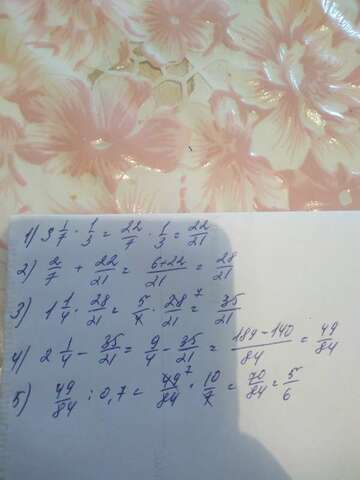 1) 3 1/7 · 1/3 = 22/7 · 1/3 = 22/21
2) 2/7 + 22/21 = 6+22/21 = 28/21
3) 1 1/4 · 28/21 = 5/4 · 28 7/21 = 35/21
4) 2 1/4 - 35/21 = 9/4 - 35/21 = 189-140/84 = 49/84
5) 49/84 : 0,7 = 49 7/84 · 10/7 = 70/84 = 5/6